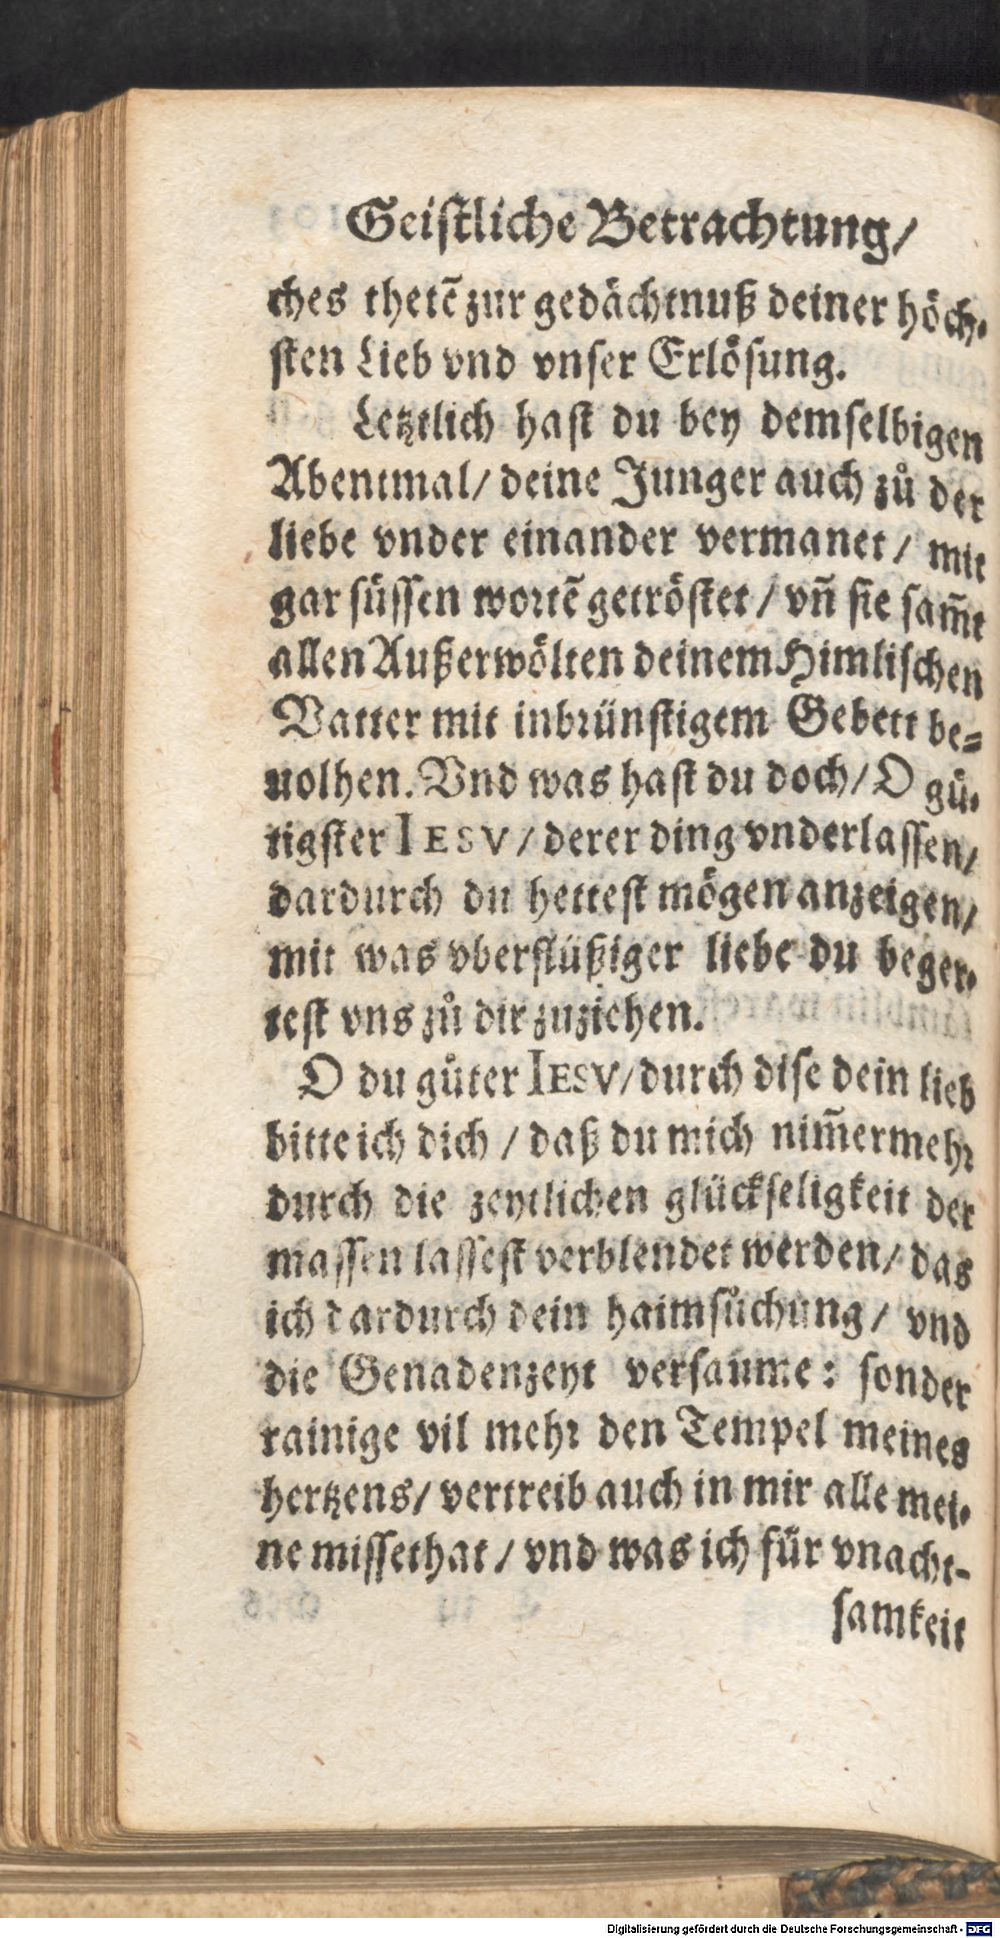 Geiſtliche Betrachtung/
ches thetẽ zur gedächtnuß deiner höch-
ſten Lieb vnd vnſer Erlöſung.
Letztlich haſt du bey demſelbigen
Abentmal/ deine Junger auch zů der
liebe vnder einander vermanet/ mit
gar ſüſſen wortẽ getröſtet/ vñ ſie ſam̃t
allen Außerwölten deinem Himliſchen
Vatter mit inbrünſtigem Gebett be-
uolhen. Vnd was haſt du doch/ O gů-
tigſter IESV/ derer ding vnderlaſſen/
dardurch du hetteſt mögen anzeigen/
mit was vberflüßiger liebe du beger-
teſt vns zů dir zuziehen.
O du gůter IESV/ durch diſe dein lieb
bitte ich dich/ daß du mich nim̃ermehr
durch die zeytlichen glückſeligkeit der
maſſen laſſeſt verblendet werden/ das
ich dardurch dein haimſůchung/ vnd
die Genadenzeyt verſaume: ſonder
rainige vil mehr den Tempel meines
hertzens/ vertreib auch in mir alle mei-
ne miſſethat/ vnd was ich für vnacht-
ſamkeit
Digitalisierung gefördert durch die Deutsche Forschungsgemeinschaft - DFG